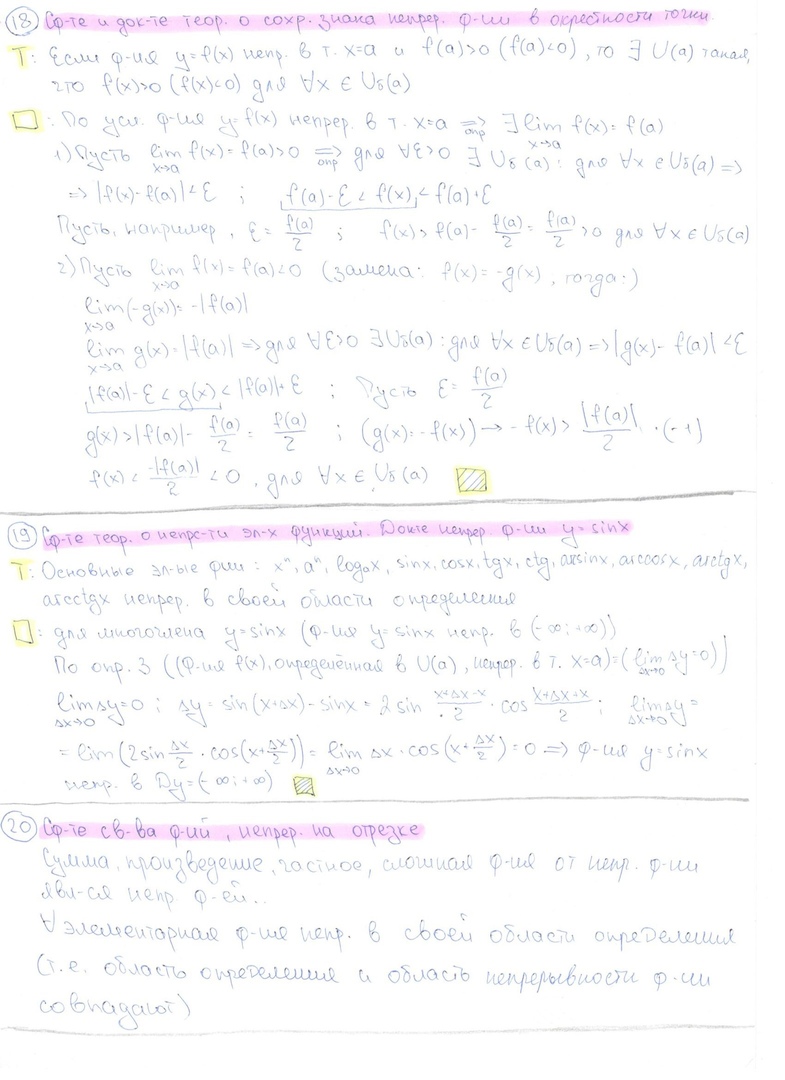 18 Сф-те и док-те теор. о сохр. знака непрер. ф-ии в окрестности точки.
Т: Если ф-ия y=f(x) непр. в т. x=a и f(a)>0 (f(a)<0), то ∃ U(a) такая,
что f(x)>0 (f(x)<0) для ∀x ∈ Uδ(a)
□: По усл. ф-ия y=f(x) непрер. в т. x=a ⇒опр ∃ lim x→a f(x) = f(a)
1) Пусть lim x→a f(x) = f(a)>0 ⇒опр для ∀ε>0 ∃ Uδ(a): для ∀x ∈ Uδ(a) ⇒
⇒ |f(x)-f(a)|<ε ; f(a)-ε < f(x) < f(a)+ε
Пусть, например, ε = f(a)/2 ; f(x) > f(a) - f(a)/2 = f(a)/2 >0 для ∀x ∈ Uδ(a)
2) Пусть lim x→a f(x) = f(a)<0 (замена: f(x) = -g(x), тогда:)
lim x→a (-g(x)) = -|f(a)|
lim x→a g(x) = |f(a)| ⇒ для ∀ε>0 ∃ Uδ(a): для ∀x ∈ Uδ(a) ⇒ |g(x) - f(a)| < ε
|f(a)|-ε < g(x) < |f(a)|+ε ; Пусть ε = f(a)/2
g(x) > |f(a)| - f(a)/2 = f(a)/2 ; (g(x) = -f(x)) → -f(x) > |f(a)|/2 ·(-1)
f(x) < -|f(a)|/2 < 0, для ∀x ∈ Uδ(a)
19 Сф-те теор. о непр-ти эл-х функций. Док-те непрер. ф-ии y=sinx
Т: Основные эл-ые ф-ии: xⁿ, aⁿ, logₐx, sinx, cosx, tgx, ctg, arcsinx, arccosx, arctgx,
arcctgx непрер. в своей области определения
□: для многочлена y=sinx (ф-ия y=sinx непр. в (-∞;+∞))
По опр. 3 ((Ф-ия f(x), определённая в U(a), непрер. в т. x=a) = (lim Δx→0 Δy=0))
lim Δx→0 Δy=0 ; Δy = sin(x+Δx) - sinx = 2sin (x+Δx-x)/2 · cos (x+Δx+x)/2 ; lim Δx→0 Δy =
= lim (2sin Δx/2 · cos(x+Δx/2)) = lim Δx→0 Δx · cos(x+Δx/2) = 0 ⇒ ф-ия y=sinx
непр. в Dy=(-∞;+∞)
20 Сф-те св-ва ф-ий, непрер. на отрезке
Сумма, произведение, частное, сложная ф-ия от непр. ф-ии
явл-ся непр. ф-ей..
∀ элементарная ф-ия непр. в своей области определения
(т.е. область определения и область непрерывности ф-ии
совпадают)